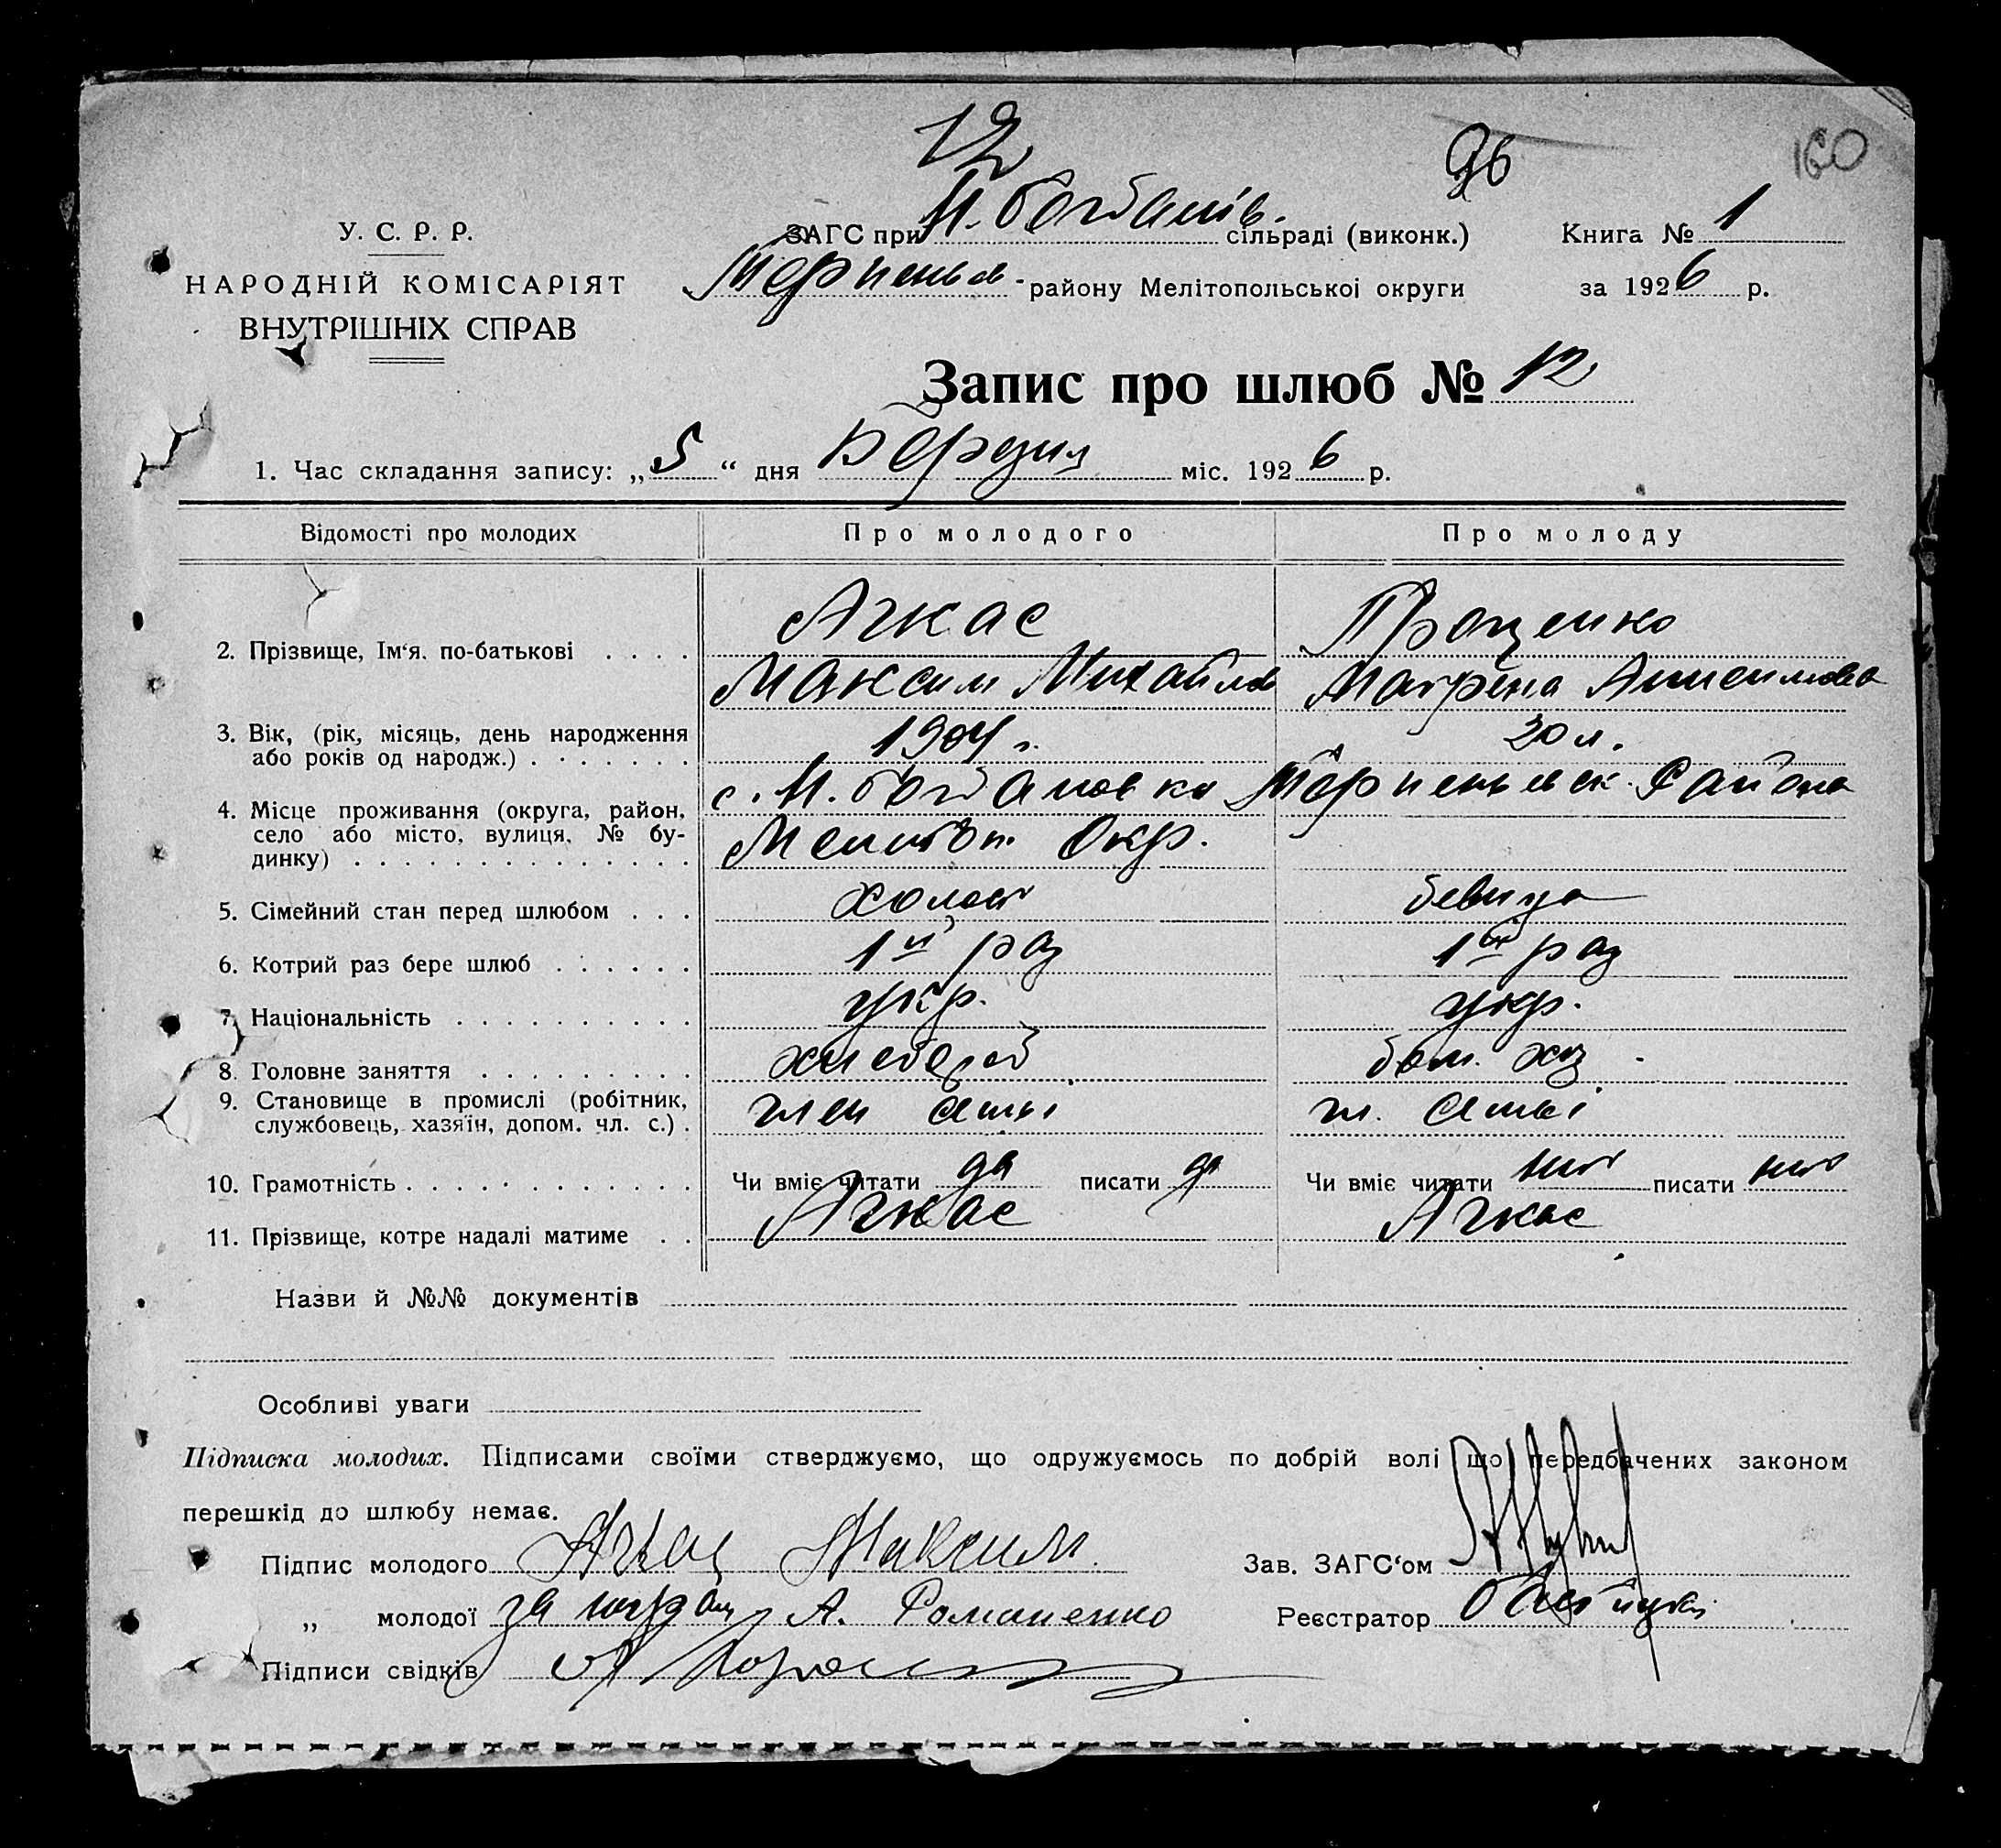 12
96
160
У. С. Р. Р.
НАРОДНІЙ КОМІСАРІЯТ
ВНУТРІШНІХ СПРАВ
ЗАГС при М. Богданів. сільраді (виконк.)
Книга № 1
Терпеньев- району Мелітопольської округи
за 1926 р.
Запис про шлюб № 12
1. Час складання запису: „5“ дня Березня міс. 1926 р.
Відомості про молодих
Про молодого
Про молоду
2. Прізвище, Ім‘я, по-батькові . . . .
Ачкас
Проценко
Максим Михайлов
Матрена Анисимова
3. Вік, (рік, місяць, день народження або років од народж.) . . . . . . .
1904 г.
20 л.
4. Місце проживання (округа, район, село або місто, вулиця, № будинку) . . . . . . . . . . . . . .
с. М. Богдановка Терпеньевск. Района
Мелитоп. Окр.
5. Сімейний стан перед шлюбом . . .
холост
девица
6. Котрий раз бере шлюб . . . . . .
1й раз
1й раз
7. Національність . . . . . . . . . .
укр.
укр.
8. Головне заняття . . . . . . . . .
хлебороб
дом. хоз.
9. Становище в промислі (робітник, службовець, хазяїн, допом. чл. с.) .
член семьі
чл. семьі
10. Грамотність . . . . . . . . . . . .
Чи вміє читати да писати да
Чи вміє читати нит писати нит
11. Прізвище, котре надалі матиме . .
Ачкас
Ачкас
Назви й №№ документів
Особливі уваги
Підписка молодих. Підписами своїми стверджуємо, що одружуємось по добрій волі що передбачених законом
перешкід до шлюбу немає.
Підпис молодого Ачкас Максим.
Зав. ЗАГС‘ом
„ молодої за А. Романенко
Реєстратор
Підписи свідків